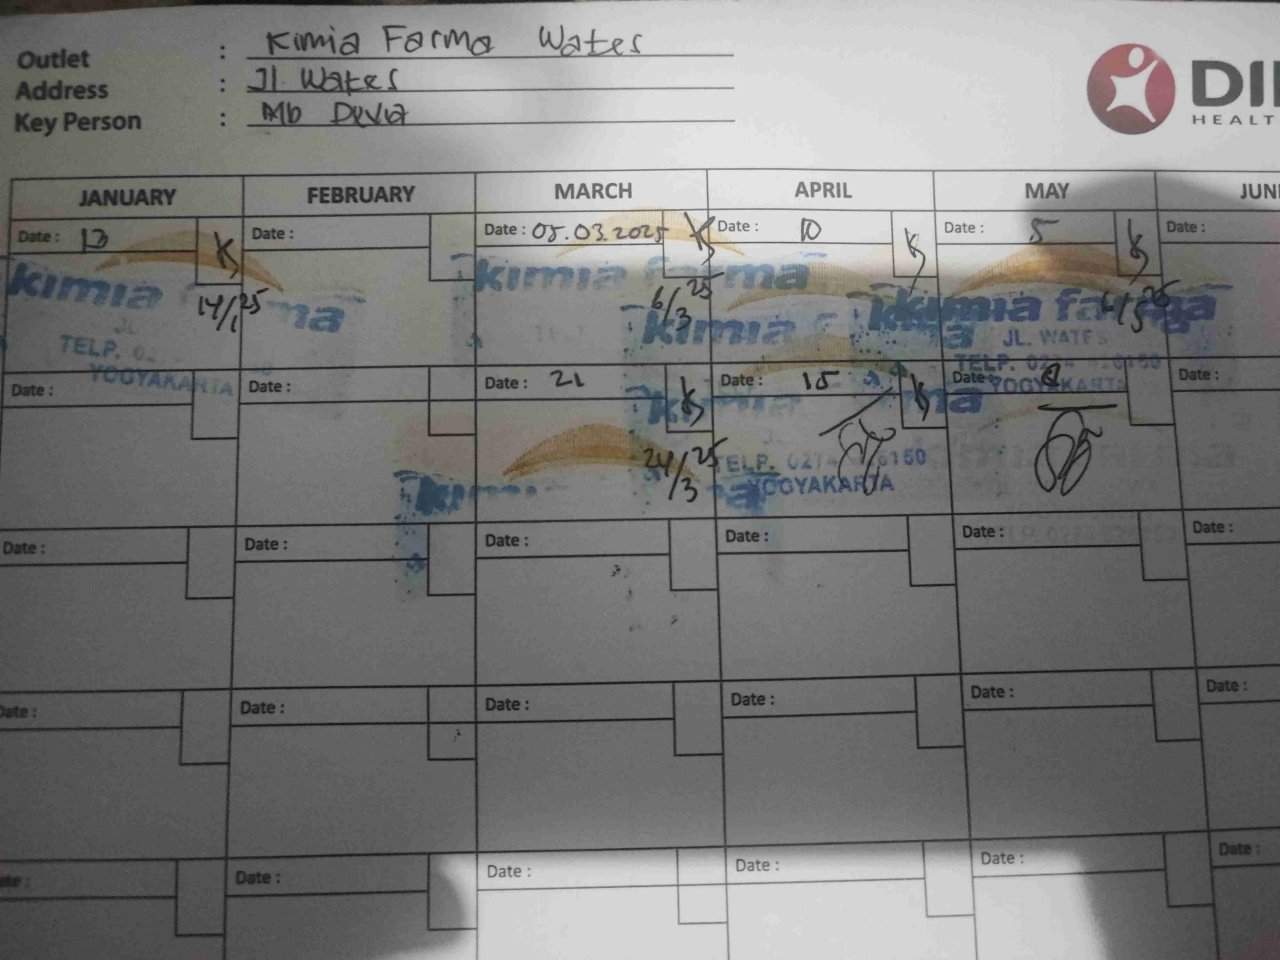 Outlet : Kimia Farma Wates
Address : Jl Wates
Key Person : Mb Devia
HEALT
JANUARY FEBRUARY MARCH APRIL MAY
Date : 13 Date : Date : 05.03.2025 Date : 10 Date : 5 Date :
kimia farma kimia farma kimia farma
14/1 25 6/3 25 kimia
JL. WATES
TELP. TELP.
YOGYAKARTA YOGYAKARTA
Date : Date : Date : 21 Date : 15 Date : 8 Date :
24/3 25 TELP. 0274 6150
YOGYAKARTA
Date : Date : Date : Date : Date : Date :
Date : Date : Date : Date : Date : Date :
Date : Date : Date : Date : Date :